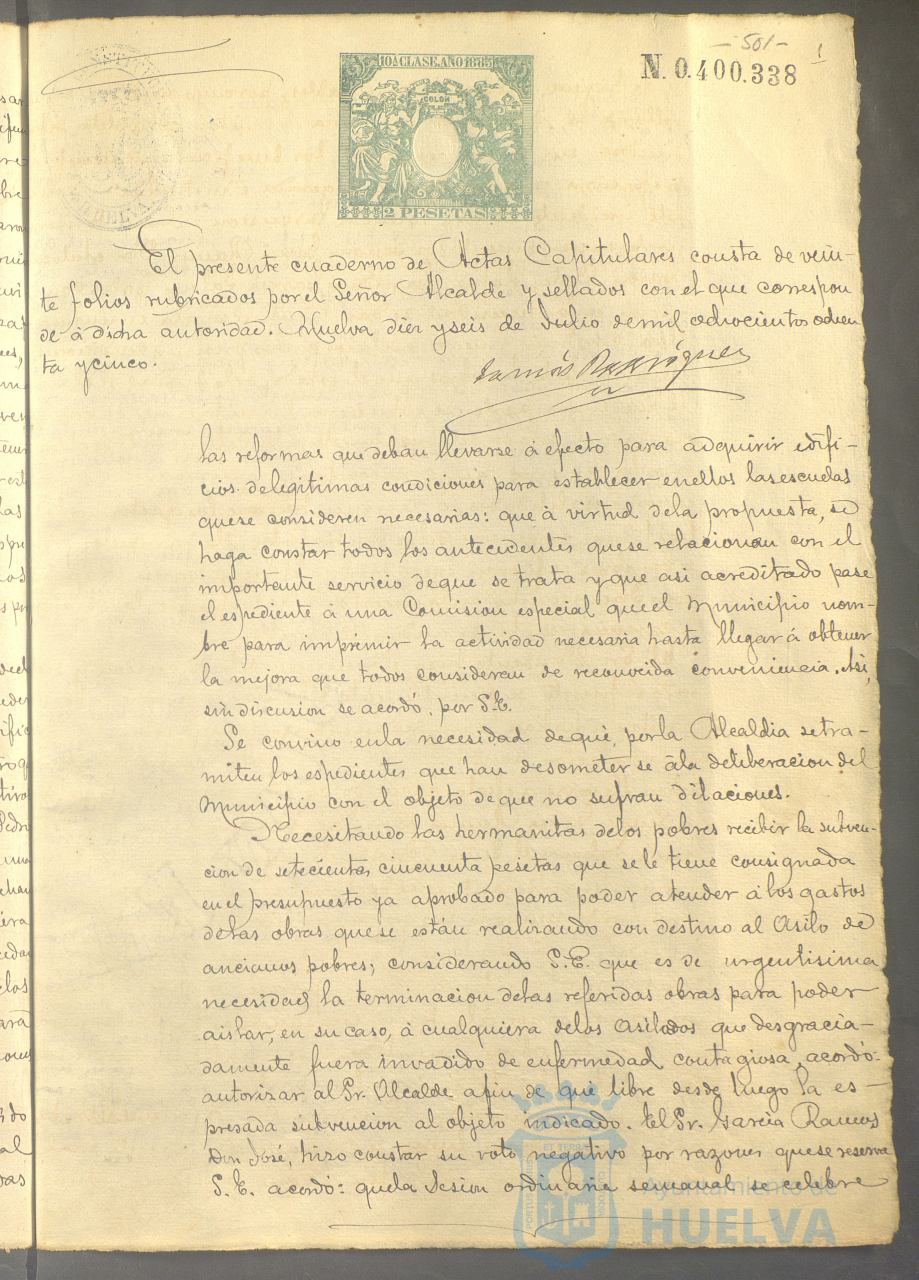 - 501 -
1
10ª CLASE. AÑO 1885
COLON
2 PESETAS
N. 0.400.338
HUELVA
El presente cuaderno de Actas Capitulares consta de vein-
te folios rubricados por el Señor Alcalde y sellados con el que correspon
de á dicha autoridad. Huelva diez y seis de Julio de mil ochocientos ochen
ta y cinco.
Tomás Rodríguez
las reformas que deban llevarse á efecto para adquirir edifi-
cios de legitimas condiciones para establecer en ellos las escuelas
que se consideren necesarias: que á virtud de la propuesta, se
haga constar todos los antecedentes que se relacionan con el
importante servicio de que se trata y que asi acreditado pase
el espediente á una Comision especial que el Municipio nom-
bre para imprimir la actividad necesaria hasta llegar á obtener
la mejora que todos consideran de reconocida conveniencia. Asi,
sin discusion se acordó, por S.E.
Se convino en la necesidad de que, por la Alcaldia se tra-
miten los espedientes que han de someterse á la deliberacion del
Municipio con el objeto de que no sufran dilaciones.
Necesitando las hermanitas de los pobres recibir la subven-
cion de setecientas cincuenta pesetas que se le tiene consignada
en el presupuesto ya aprobado para poder atender á los gastos
de las obras que se están realizando con destino al Asilo de
ancianos pobres; considerando S.E. que es de urgentisima
necesidad la terminacion de las referidas obras para poder
aislar, en su caso, á cualquiera de los asilados que desgracia-
damente fuera invadido de enfermedad contagiosa, acordó:
autorizar al Sr. Alcalde a fin de que libre desde luego la es-
presada subvencion al objeto indicado. El Sr. Garcia Ramos
Don José, hizo constar su voto negativo por razones que se reserva
S.E. acordó: que la Sesion ordinaria semanal se celebre
Ayuntamiento de
HUELVA